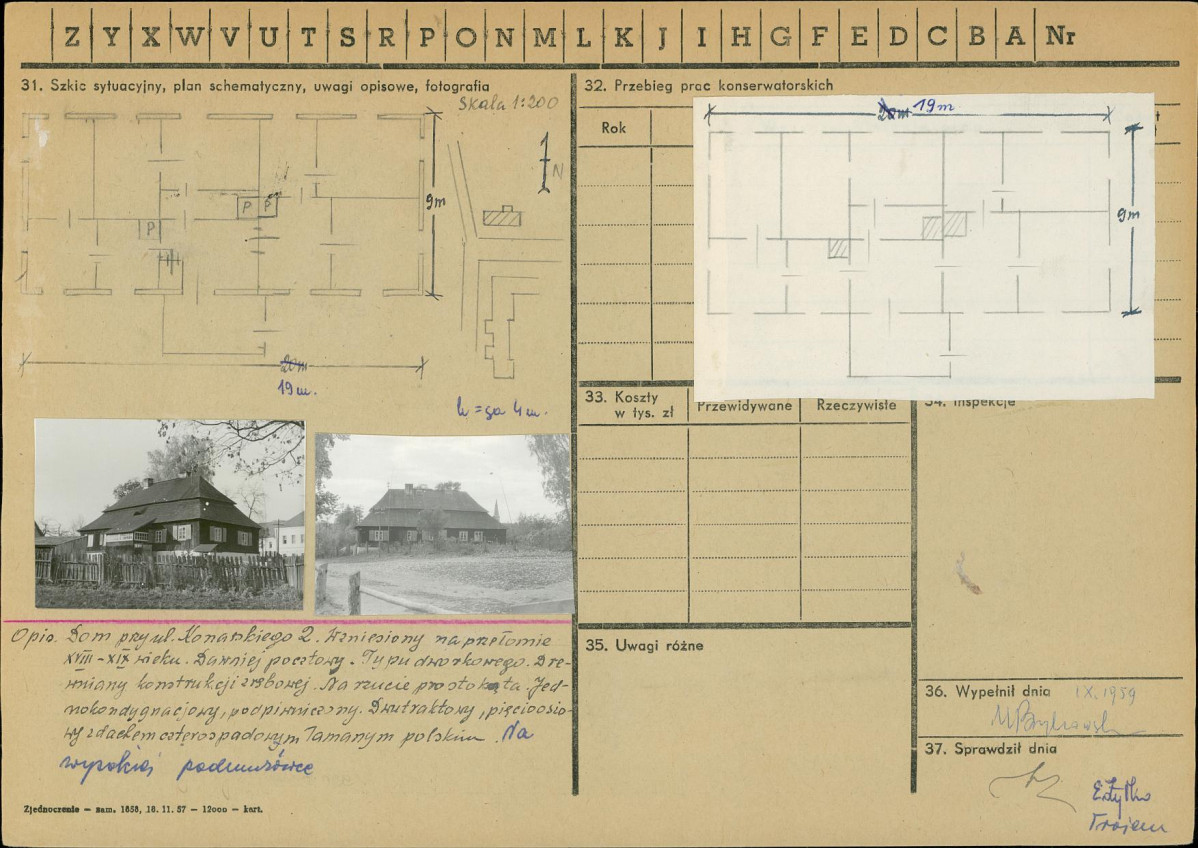 Z Y X W V U T S R P O N M L K J I H G F E D C B A Nr
31. Szkic sytuacyjny, plan schematyczny, uwagi opisowe, fotografia
Skala 1:200
N
P P
P
9m
20m
19 m.
h = ga 4 m.
Opis. Dom przy ul. Konarskiego 2. Wzniesiony na przełomie
XVIII-XIX wieku. Dawniej pocztowy. Typu dworkowego. Dre-
wniany konstrukcji zrębowej. Na rzucie prostokąta. Jed-
nokondygnacjowy, podpiwniczony. Dwutraktowy, pięcioosio-
wy z dachem czterospadowym łamanym polskim. Na
wysokiej podmurówce
Zjednoczenie – zam. 1658, 18. 11. 57 – 12000 – kart.
32. Przebieg prac konserwatorskich
Rok
20m 19m
9m
33. Koszty
w tys. zł
Przewidywane
Rzeczywiste
34. Inspekcje
35. Uwagi różne
36. Wypełnił dnia IX.1959
37. Sprawdził dnia